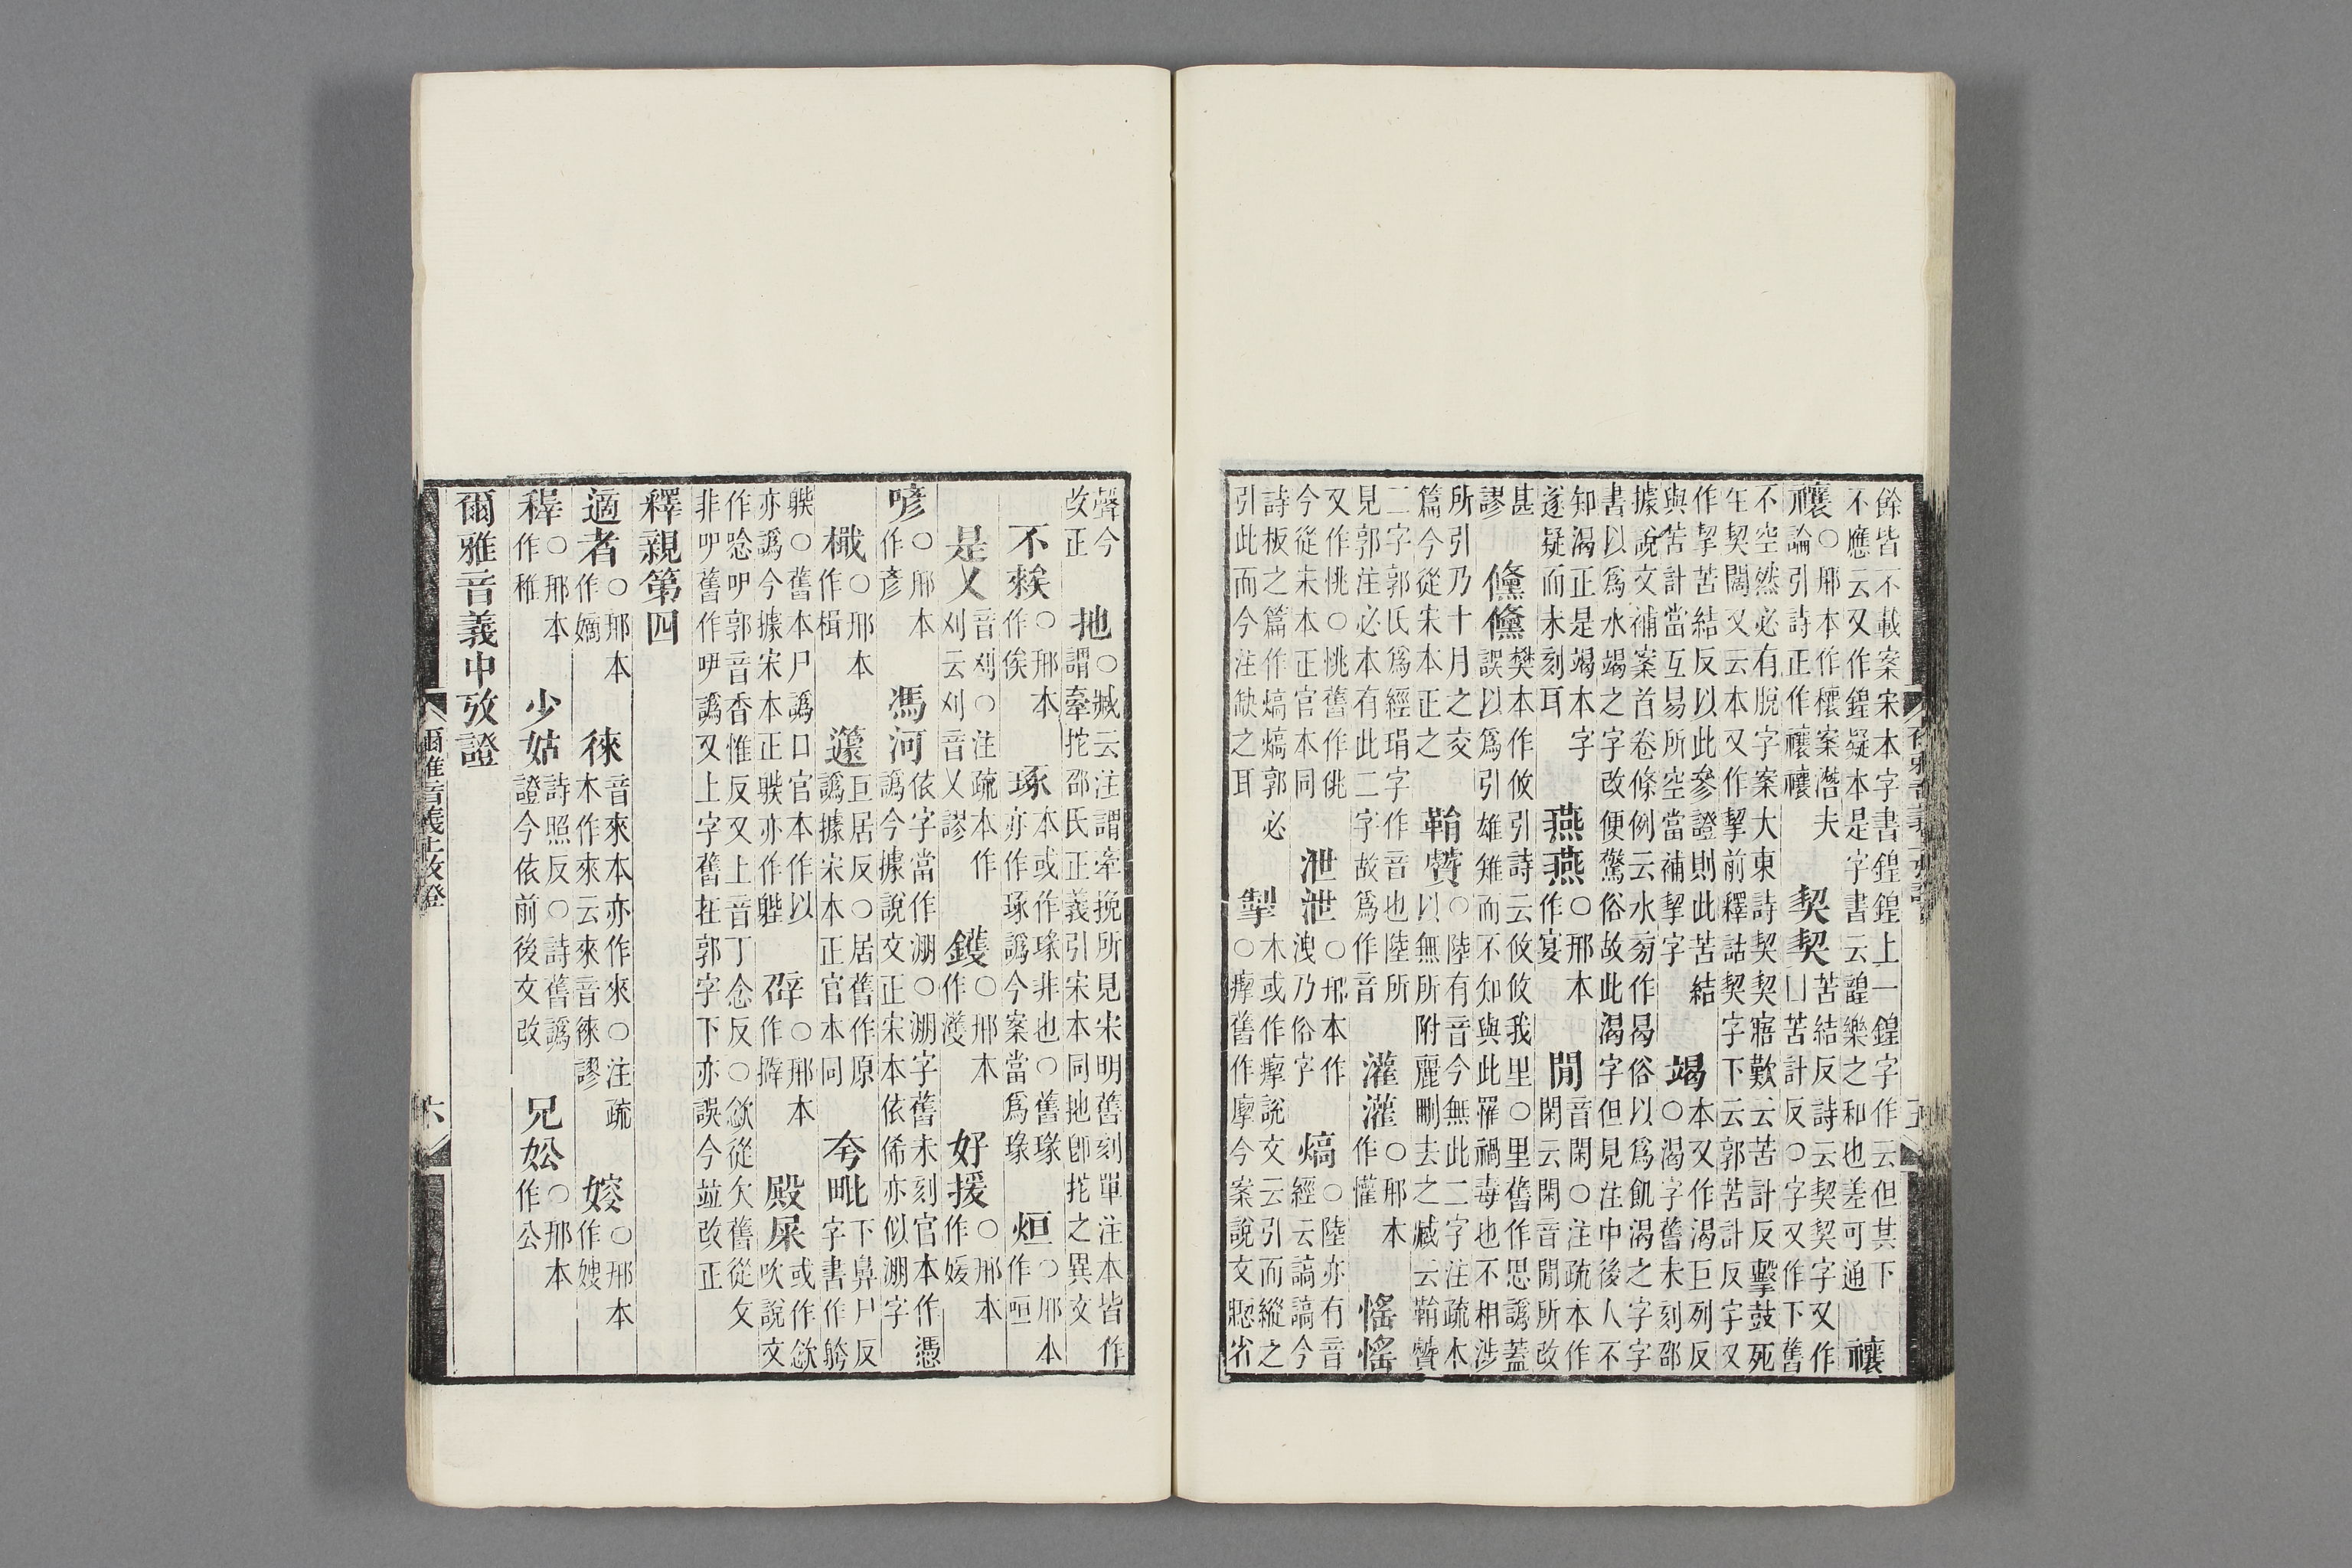 餘皆不載案宋本字書鍠鍠上一鍠字作云但其下
不應云又作鍠疑本是字書云諻樂之和也差可通 禳
禳○邢本作穰案濳夫
論引詩正作禳禳
契契 苦結反詩云契契字又作
凵苦計反○字又作下舊
不空然必有脫字案大東詩契契寤歎云苦計反擊鼓死
生契闊又云本又作挈前釋詁契契字下云郭苦計反字又
作挈苦結反以此參證則此苦結
與苦計當互易所空當補挈字
竭 本又作渴巨列反
○渴字舊未刻邵
據說文補案首卷條例云水旁作曷俗以爲飢渴之字字
書以爲水竭之字改便驚俗故此渴字但見注中後人不
知渴正是竭本字
遂疑而未刻耳
燕燕 ○邢本
作宴
閒 音閑○注疏本作
閑云閑音閒所改
甚
謬
儵儵 樊本作攸引詩云攸攸我里○里舊作思譌蓋
誤以爲引雄雉而不知與此罹禍毒也不相涉
所引乃十月之交
篇今從宋本正之
鞙贙 ○陸有音今無此二字注疏本
以無所附麗刪去之臧云鞙贙
二字郭氏爲經琄字作音也陸所
見郭注必本有此二字故爲作音
灌灌 ○邢本
作懽
愮愮
又作恌○恌舊作佻
今從宋本正官本同
泄泄 ○邢本作
洩乃俗字
熇 ○陸亦有音
經云謞謞今
詩板之篇作熇熇郭必
引此而今注缺之耳
掣 本或作㾛說文云引而縱之
○㾛舊作摩今案說文瘛省
爾雅音義上攷證
五
聲今
改正
扡 ○臧云注謂牽挽所見宋明舊刻單注本皆作
謂牽拕邵氏正義引宋本同扡卽拕之異文
不䅘 ○邢本
作俟
琢 本或作瑑非也○舊瑑
亦作琢譌今案當爲瑑
烜 ○邢本
作咺
是乂 音刈○注疏本作
刈云刈音乂謬
鑊 ○邢本
作濩
好援 ○邢本
作媛
喭 ○邢本
作彥
馮河 依字當作淜○淜字舊未刻官本作憑
譌今據說文正宋本依俙亦似淜字
檝 ○邢本
作楫
籧 巨居反○居舊作原
譌據宋本正官本同
夸毗 下鼻尸反
字書作
○舊本尸譌口官本作以
亦譌今據宋本正亦作
○邢本
作擗
殿屎 或作
吹說文
作唸吚郭音香惟反又上音丁念反○從欠舊從攵
非吚舊作譌又上字舊在郭字下亦誤今並改正
釋親第四
適者 ○邢本
作嫡
徠 音來本亦作來○注疏
本作來云來音徠謬
㛐 ○邢本
作嫂
稺 ○邢本
作稚
少姑 詩照反○詩舊譌
證今依前後文改
兄妐 ○邢本
作公
爾雅音義中攷證
爾雅音義上攷證
六